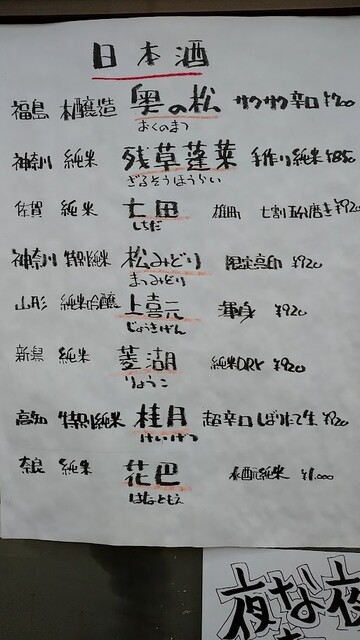 日本酒
福島 本醸造 奥の松 サクサク辛口 ¥700
おくのまつ
神奈川 純米 残草蓬莱 手作り純米 ¥850
ざるそうほうらい
佐賀 純米 七田 雄町 七割五分磨き ¥920
しちだ
神奈川 特別純米 松みどり 限定 ¥920
まつみどり
山形 純米吟醸 上喜元 渾身 ¥920
じょうきげん
新潟 純米 菱湖 純米DRY ¥920
りょうこ
高知 特別純米 桂月 超辛口しぼりたて生 ¥920
けいげつ
奈良 純米 花巴 水酛純米 ¥1,000
はなともえ
夜な夜